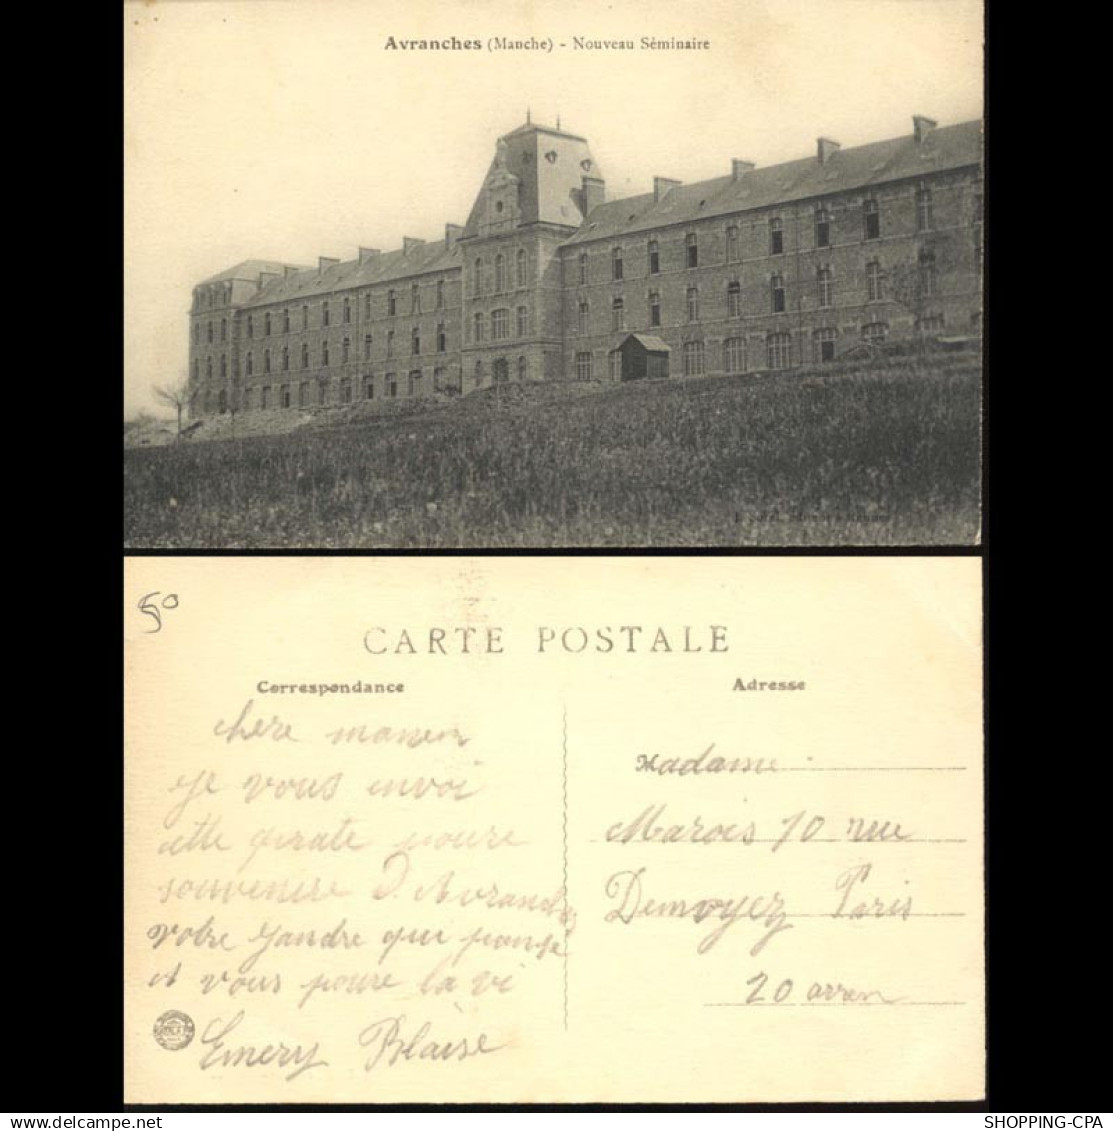 Avranches (Manche) - Nouveau Séminaire
50
CARTE POSTALE
Correspondance
Adresse
chere maman
je vous envoi
cette carte poure
souvenire D. Avranches
votre gandre qui pense
et vous poure la vi
Emery Blaise
Madame
Marois 10 rue
Demoyez Paris
20 arren
SHOPPING-CPA